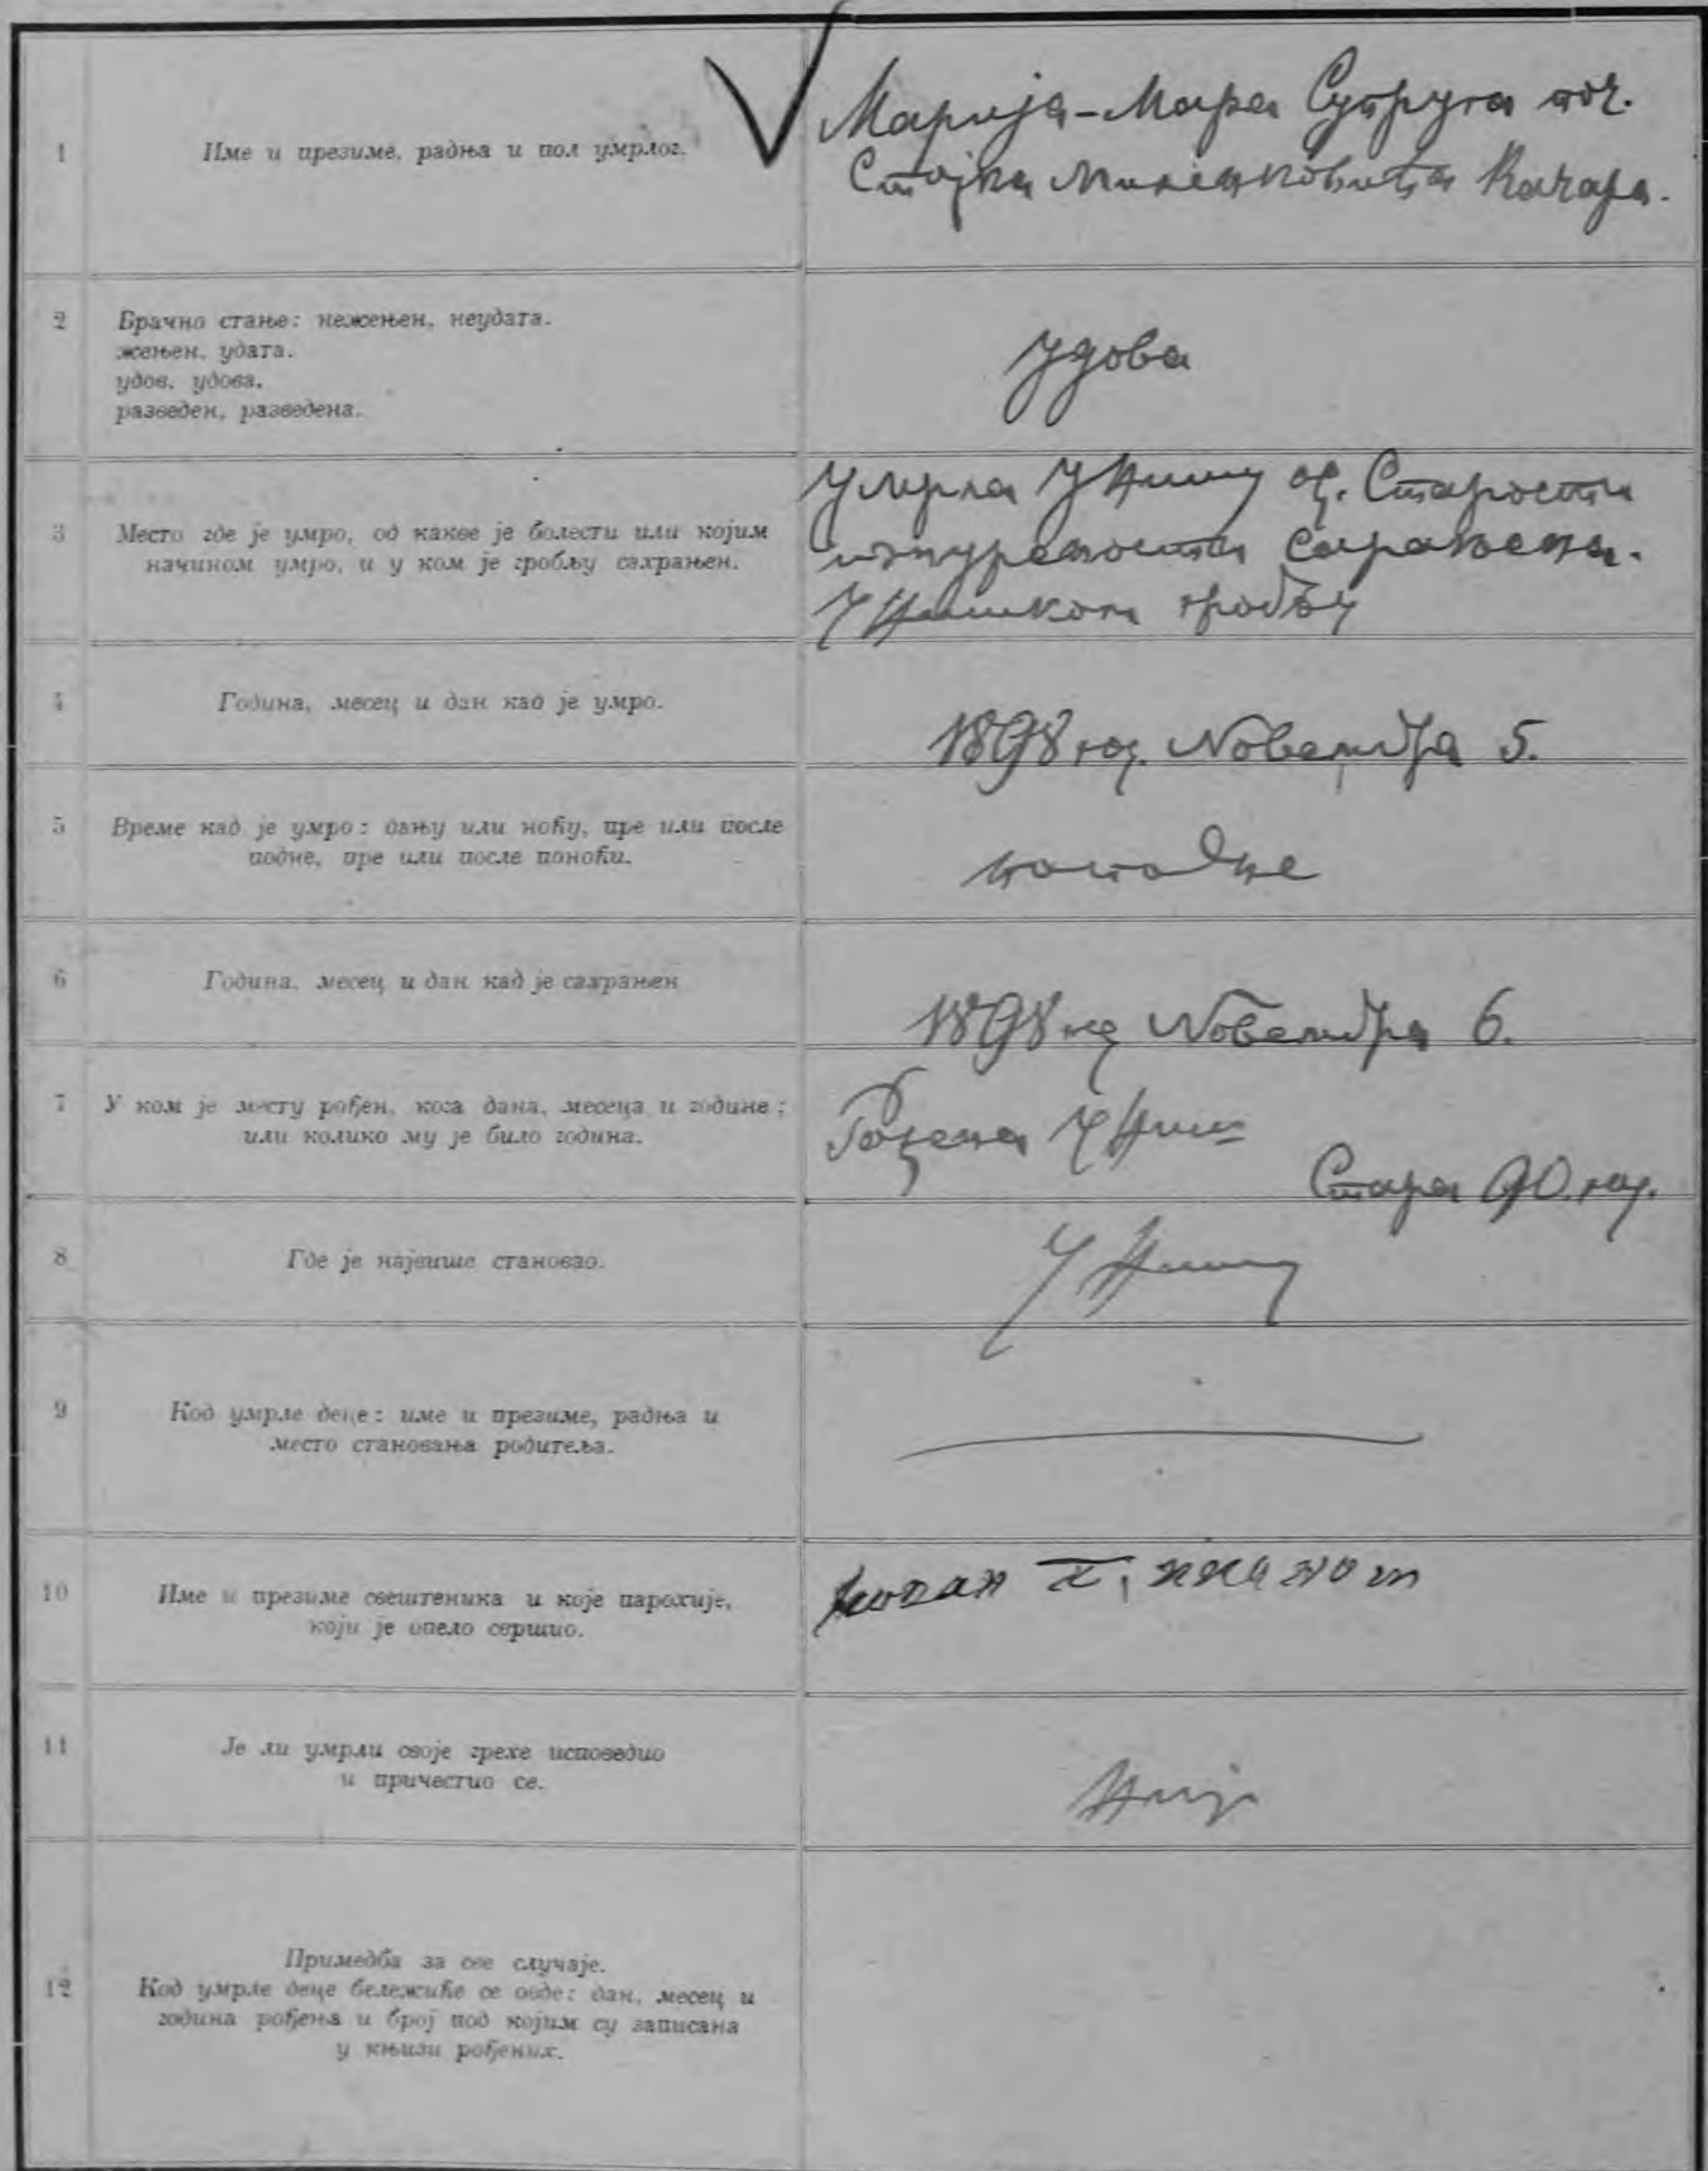 1
Име и презиме, радња и пол умрлог.
Марија-Мара Супруга поч.
Стојка Миленковића Качара.
2
Брачно стање: нежењен, неудата.
жењен, удата.
удов, удова,
разведен, разведена.
удова
3
Место где је умро, од какве је болести или којим
начином умро, и у ком је гробљу сахрањен.
Умрла У Нишу од. Старости
сарањена.
У Нишком гробљу
4
Година, месец и дан кад је умро.
1898 год. Новембра 5.
5
Време кад је умро: дању или ноћу, пре или после
подне, пре или после поноћи.
6
Година, месец и дан кад је сахрањен
1898 год Новембра 6.
7
У ком је месту рођен, кога дана, месеца и године;
или колико му је било година.
Рођена У Ниш
Стара 90. год.
8
Где је највише становао.
У Нишу
9
Код умрле деце: име и презиме, радња и
место становања родитеља.
10
Име и презиме свештеника и које парохије,
који је опело свршио.
11
Је ли умрли своје грехе исповедио
и причестио се.
Није
12
Примедба за све случаје.
Код умрле деце бележиће се овде: дан, месец и
година рођења и број под којим су записана
у књизи рођених.